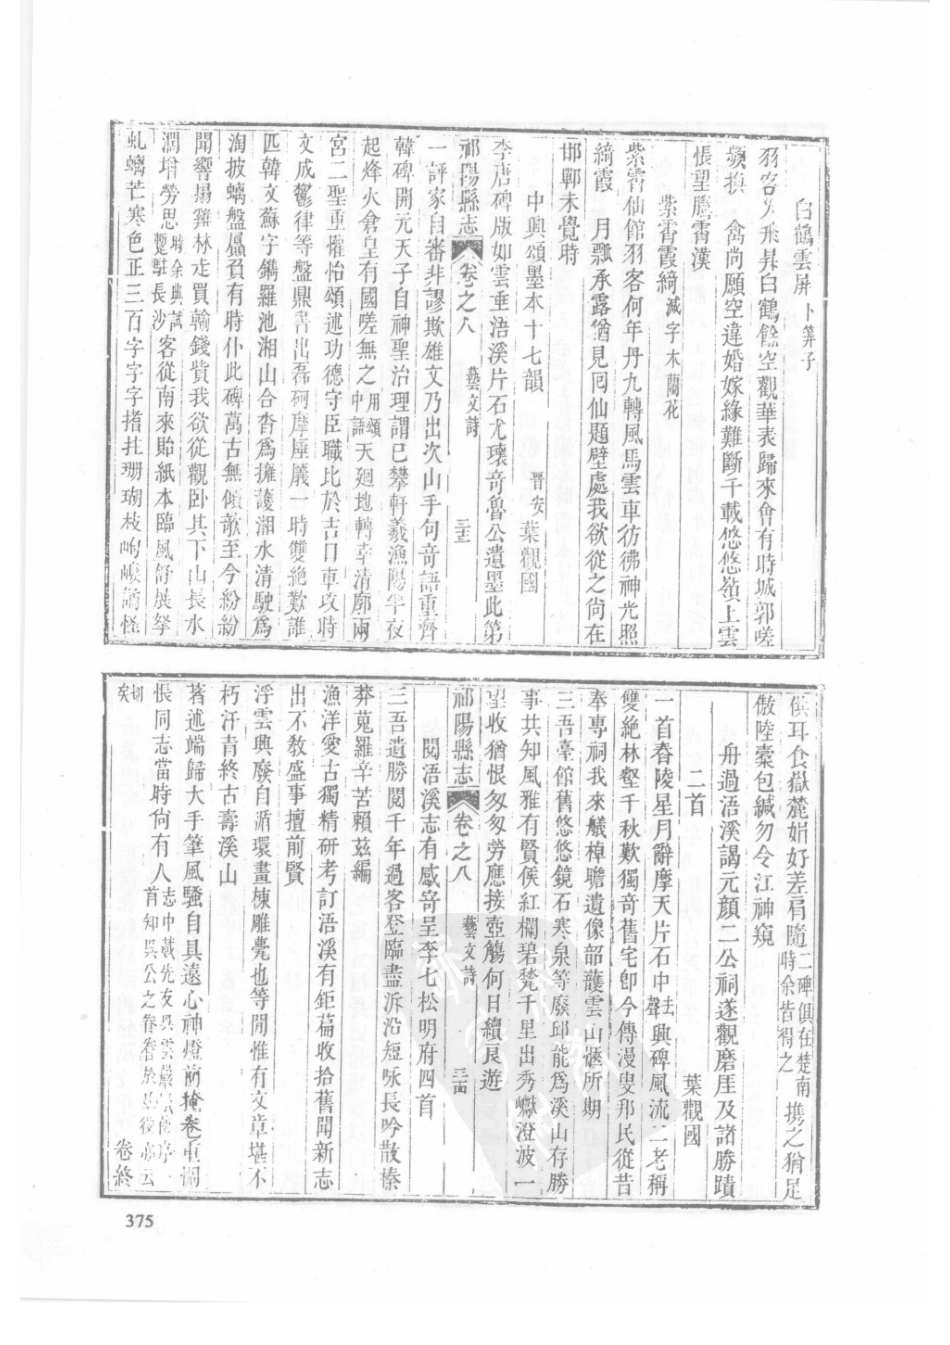 白鶴雲屏 卜筭子
羽客乆飛昇白鶴餘空觀華表歸來會有時城郭嗟
頻換 禽尚願空違婚嫁緣難斷千載悠悠嶺上雲
悵望騰霄漢
紫霄霞綺 減字木蘭花
紫霄仙館羽客何年丹九轉風馬雲車彷彿神光照
綺霞 月瓢承露猶見囘仙題壁處我欲從之尙在
邯鄲未覺時
中興頌墨本十七韻 晋安 葉觀國
李唐碑版如雲垂浯溪片石尤瓌奇魯公遺墨此第
祁陽縣志 卷之八 藝文詩 三三
一評家自審非謬欺雄文乃出次山手句奇語重齊
韓碑開元天子自神聖治理謂已攀軒羲漁陽半夜
起烽火倉皇有國嗟無之用頌中語天廻地轉幸淸廓兩
宮二聖重懽怡頌述功德守臣職比於吉日車攻時
文成鬱律等盤鼎書出磊砢摩崖巖一時雙絶歎誰
匹韓文蘇字鐫羅池湘山合沓爲擁護湘水清駛爲
淘披螭盤贔負有時仆此碑萬古無傾欹至今紛紛
聞響搨雞林走買輸錢貲我欲從觀臥其下山長水
濶增勞思時余典試蹔駐長沙客從南來貽紙本臨風舒展拏
虬螭芒寒色正三百字字字撐拄珊瑚枝岣嶁譎怪
俱耳食嶽麓娟好差肩隨二碑俱在楚南時余皆得之攜之猶足
傲陸橐包緘勿令江神窺
舟過浯溪謁元顏二公祠遂觀磨厓及諸勝蹟
二首 葉觀國
一首舂陵星月辭摩天片石中去聲興碑風流二老稱
雙絶林壑千秋歎獨奇舊宅卽今傳漫叟邦民從昔
奉專祠我來艤棹瞻遺像韶頀雲山愜所期
三吾臺館舊悠悠鏡石寒泉等廢邱能爲溪山存勝
事共知風雅有賢侯紅欄碧甃千里出秀巘澄波一
望收猶恨匆匆勞應接壺觴何日續良遊
祁陽縣志 卷之八 藝文詩 三四
閱浯溪志有感寄呈李七松明府四首
三吾遺勝閱千年過客登臨盡泝沿短咏長吟散榛
莽蒐羅辛苦賴茲編
漁洋愛古獨精研考訂浯溪有鉅萹收拾舊聞新志
出不敎盛事擅前賢
浮雲興廢自循環畫棟雕甍也等閒惟有文章堪不
朽汗青終古壽溪山
著述端歸大手筆風騷自具遠心神燈前掩卷重惆
悵同志當時尙有人志中載先友吳雲巖序首知吳公之眷眷於是役亦云
切矣 卷終
375